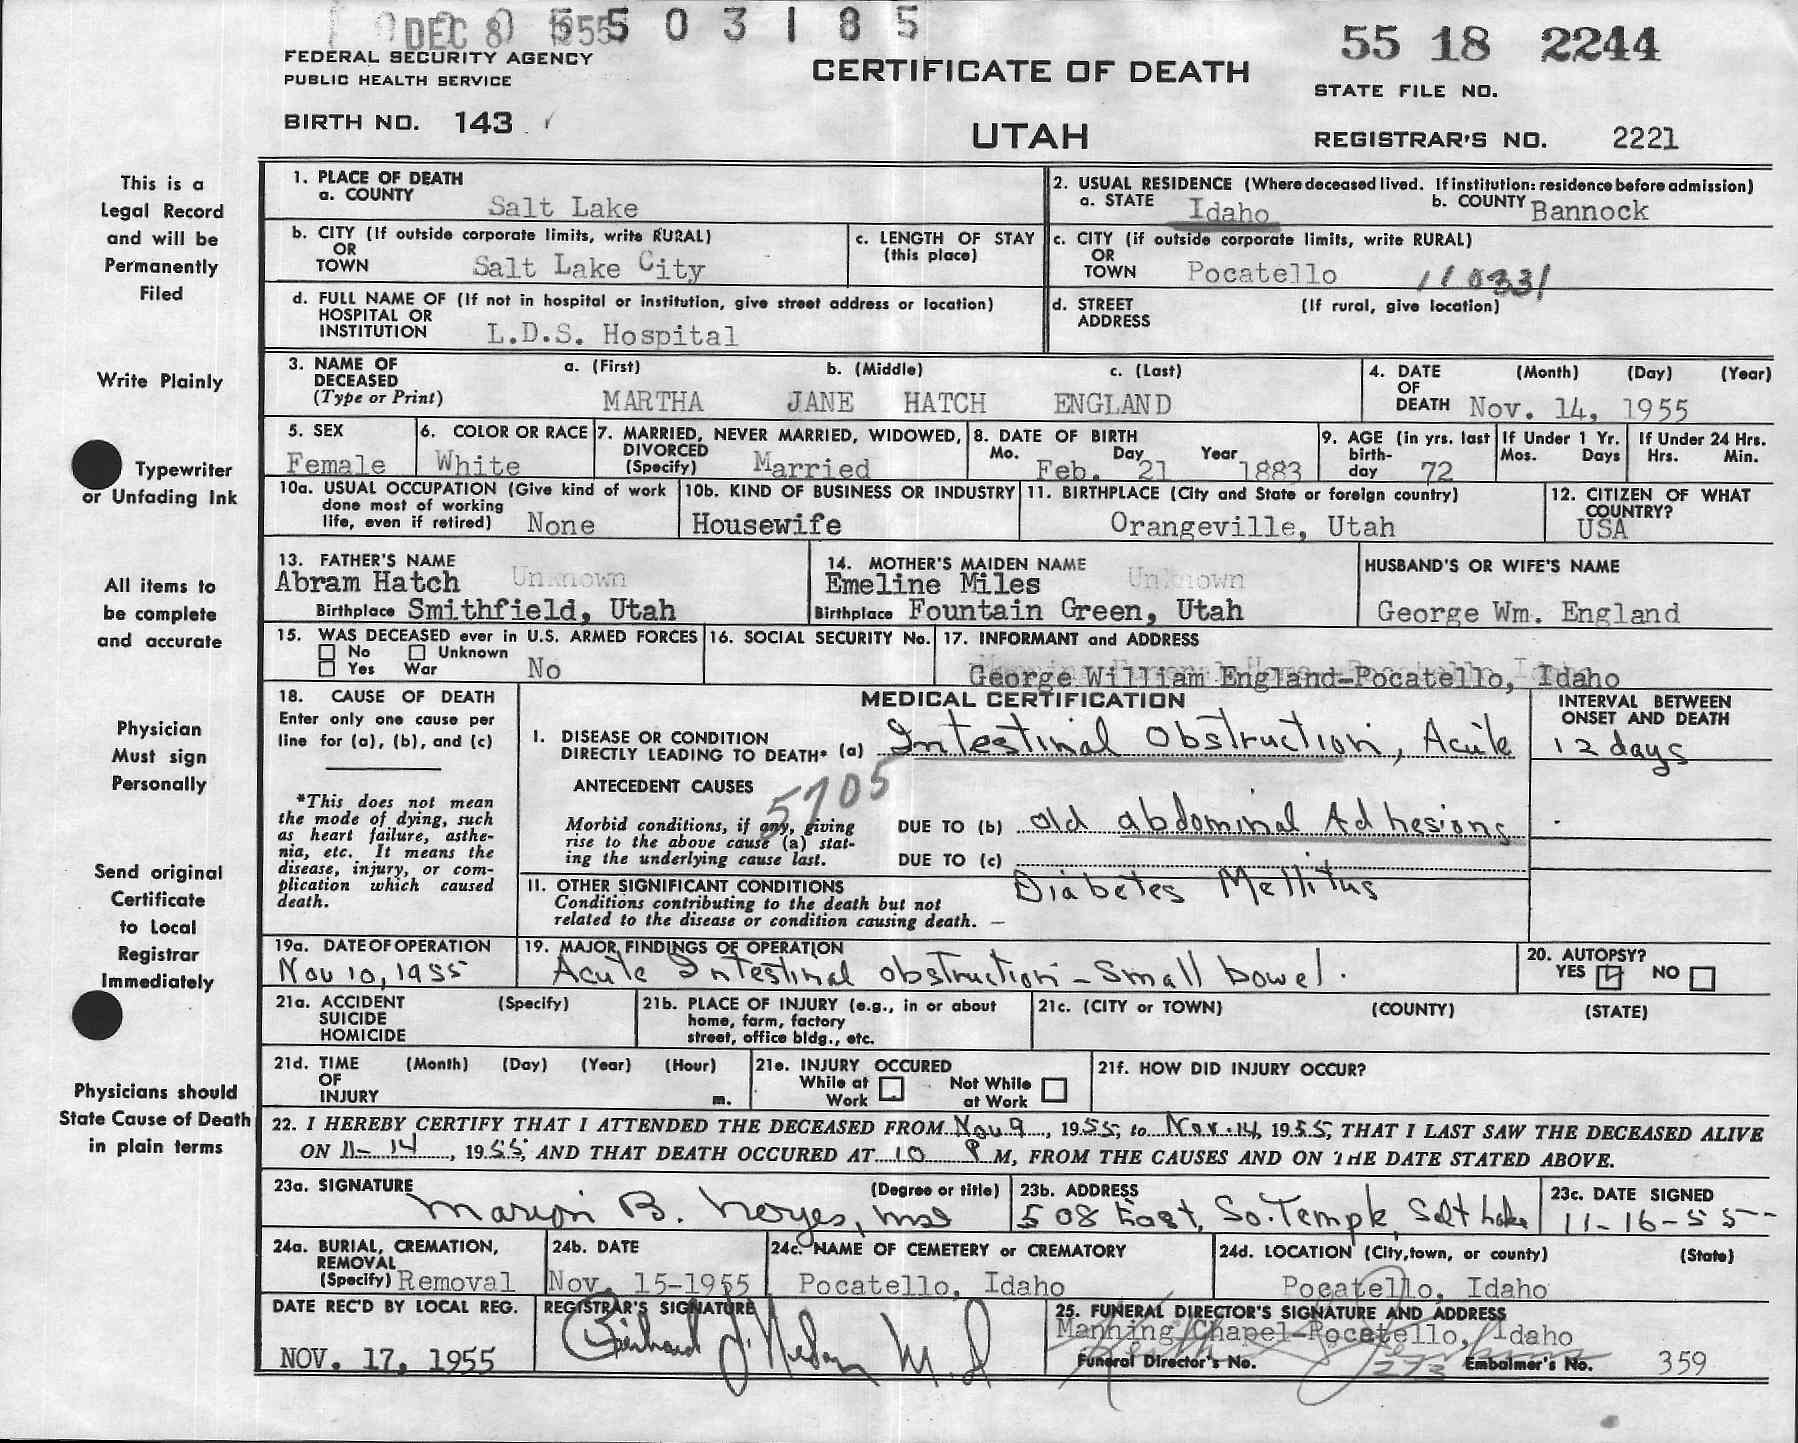 DEC 8 1955 5 5 0 3 1 8 5
55 18 2244
FEDERAL SECURITY AGENCY
PUBLIC HEALTH SERVICE
CERTIFICATE OF DEATH
STATE FILE NO.
BIRTH NO. 143
UTAH
REGISTRAR'S NO. 2221
This is a
Legal Record
and will be
Permanently
Filed
Write Plainly
Typewriter
or Unfading Ink
All items to
be complete
and accurate
Physician
Must sign
Personally
Send original
Certificate
to Local
Registrar
Immediately
Physicians should
State Cause of Death
in plain terms
1. PLACE OF DEATH
a. COUNTY
Salt Lake
2. USUAL RESIDENCE (Where deceased lived. If institution: residence before admission)
a. STATE Idaho b. COUNTY Bannock
b. CITY (If outside corporate limits, write RURAL)
OR
TOWN Salt Lake City
c. LENGTH OF STAY
(this place)
c. CITY (if outside corporate limits, write RURAL)
OR
TOWN Pocatello 11033/
d. FULL NAME OF (If not in hospital or institution, give street address or location)
HOSPITAL OR
INSTITUTION L.D.S. Hospital
d. STREET (If rural, give location)
ADDRESS
3. NAME OF a. (First) b. (Middle) c. (Last)
DECEASED
(Type or Print) MARTHA JANE HATCH ENGLAND
4. DATE (Month) (Day) (Year)
OF
DEATH Nov. 14, 1955
5. SEX
Female
6. COLOR OR RACE
White
7. MARRIED, NEVER MARRIED, WIDOWED,
DIVORCED
(Specify) Married
8. DATE OF BIRTH
Mo. Day Year
Feb. 21 1883
9. AGE (in yrs. last
birth-
day 72
If Under 1 Yr.
Mos. Days
If Under 24 Hrs.
Hrs. Min.
10a. USUAL OCCUPATION (Give kind of work
done most of working
life, even if retired) None
10b. KIND OF BUSINESS OR INDUSTRY
Housewife
11. BIRTHPLACE (City and State or foreign country)
Orangeville, Utah
12. CITIZEN OF WHAT
COUNTRY?
USA
13. FATHER'S NAME
Abram Hatch Unknown
Birthplace Smithfield, Utah
14. MOTHER'S MAIDEN NAME
Emeline Miles Unknown
Birthplace Fountain Green, Utah
HUSBAND'S OR WIFE'S NAME
George Wm. England
15. WAS DECEASED ever in U.S. ARMED FORCES
No Unknown
Yes War No
16. SOCIAL SECURITY No.
17. INFORMANT and ADDRESS
George William England-Pocatello, Idaho
18. CAUSE OF DEATH
Enter only one cause per
line for (a), (b), and (c)
*This does not mean
the mode of dying, such
as heart failure, asthe-
nia, etc. It means the
disease, injury, or com-
plication which caused
death.
MEDICAL CERTIFICATION
INTERVAL BETWEEN
ONSET AND DEATH
I. DISEASE OR CONDITION
DIRECTLY LEADING TO DEATH* (a) Intestinal Obstruction, Acute 12 days
ANTECEDENT CAUSES 5705
Morbid conditions, if any, giving
rise to the above cause (a) stat-
ing the underlying cause last.
DUE TO (b) old abdominal Adhesions
DUE TO (c)
II. OTHER SIGNIFICANT CONDITIONS
Conditions contributing to the death but not
related to the disease or condition causing death. —
Diabetes Mellitus
19a. DATE OF OPERATION
Nov 10, 1955
19. MAJOR FINDINGS OF OPERATION
Acute Intestinal obstruction - Small bowel.
20. AUTOPSY?
YES NO
21a. ACCIDENT (Specify)
SUICIDE
HOMICIDE
21b. PLACE OF INJURY (e.g., in or about
home, farm, factory
street, office bldg., etc.
21c. (CITY or TOWN) (COUNTY) (STATE)
21d. TIME (Month) (Day) (Year) (Hour)
OF
INJURY m.
21e. INJURY OCCURED
While at Work Not While at Work
21f. HOW DID INJURY OCCUR?
22. I HEREBY CERTIFY THAT I ATTENDED THE DECEASED FROM Nov 9, 1955, to Nov. 14, 1955, THAT I LAST SAW THE DECEASED ALIVE
ON 11-14, 1955, AND THAT DEATH OCCURED AT 10 P M, FROM THE CAUSES AND ON THE DATE STATED ABOVE.
23a. SIGNATURE (Degree or title)
Marion B. Noyes,
23b. ADDRESS
508 East, So. Temple, Salt Lake
23c. DATE SIGNED
11-16-55
24a. BURIAL, CREMATION,
REMOVAL
(Specify) Removal
24b. DATE
Nov. 15-1955
24c. NAME OF CEMETERY or CREMATORY
Pocatello, Idaho
24d. LOCATION (City,town, or county) (State)
Pocatello, Idaho
DATE REC'D BY LOCAL REG.
NOV. 17, 1955
REGISTRAR'S SIGNATURE
M.D
25. FUNERAL DIRECTOR'S SIGNATURE AND ADDRESS
Manning Chapel-Pocatello, Idaho
Funeral Director's No. 273 Embalmer's No. 359